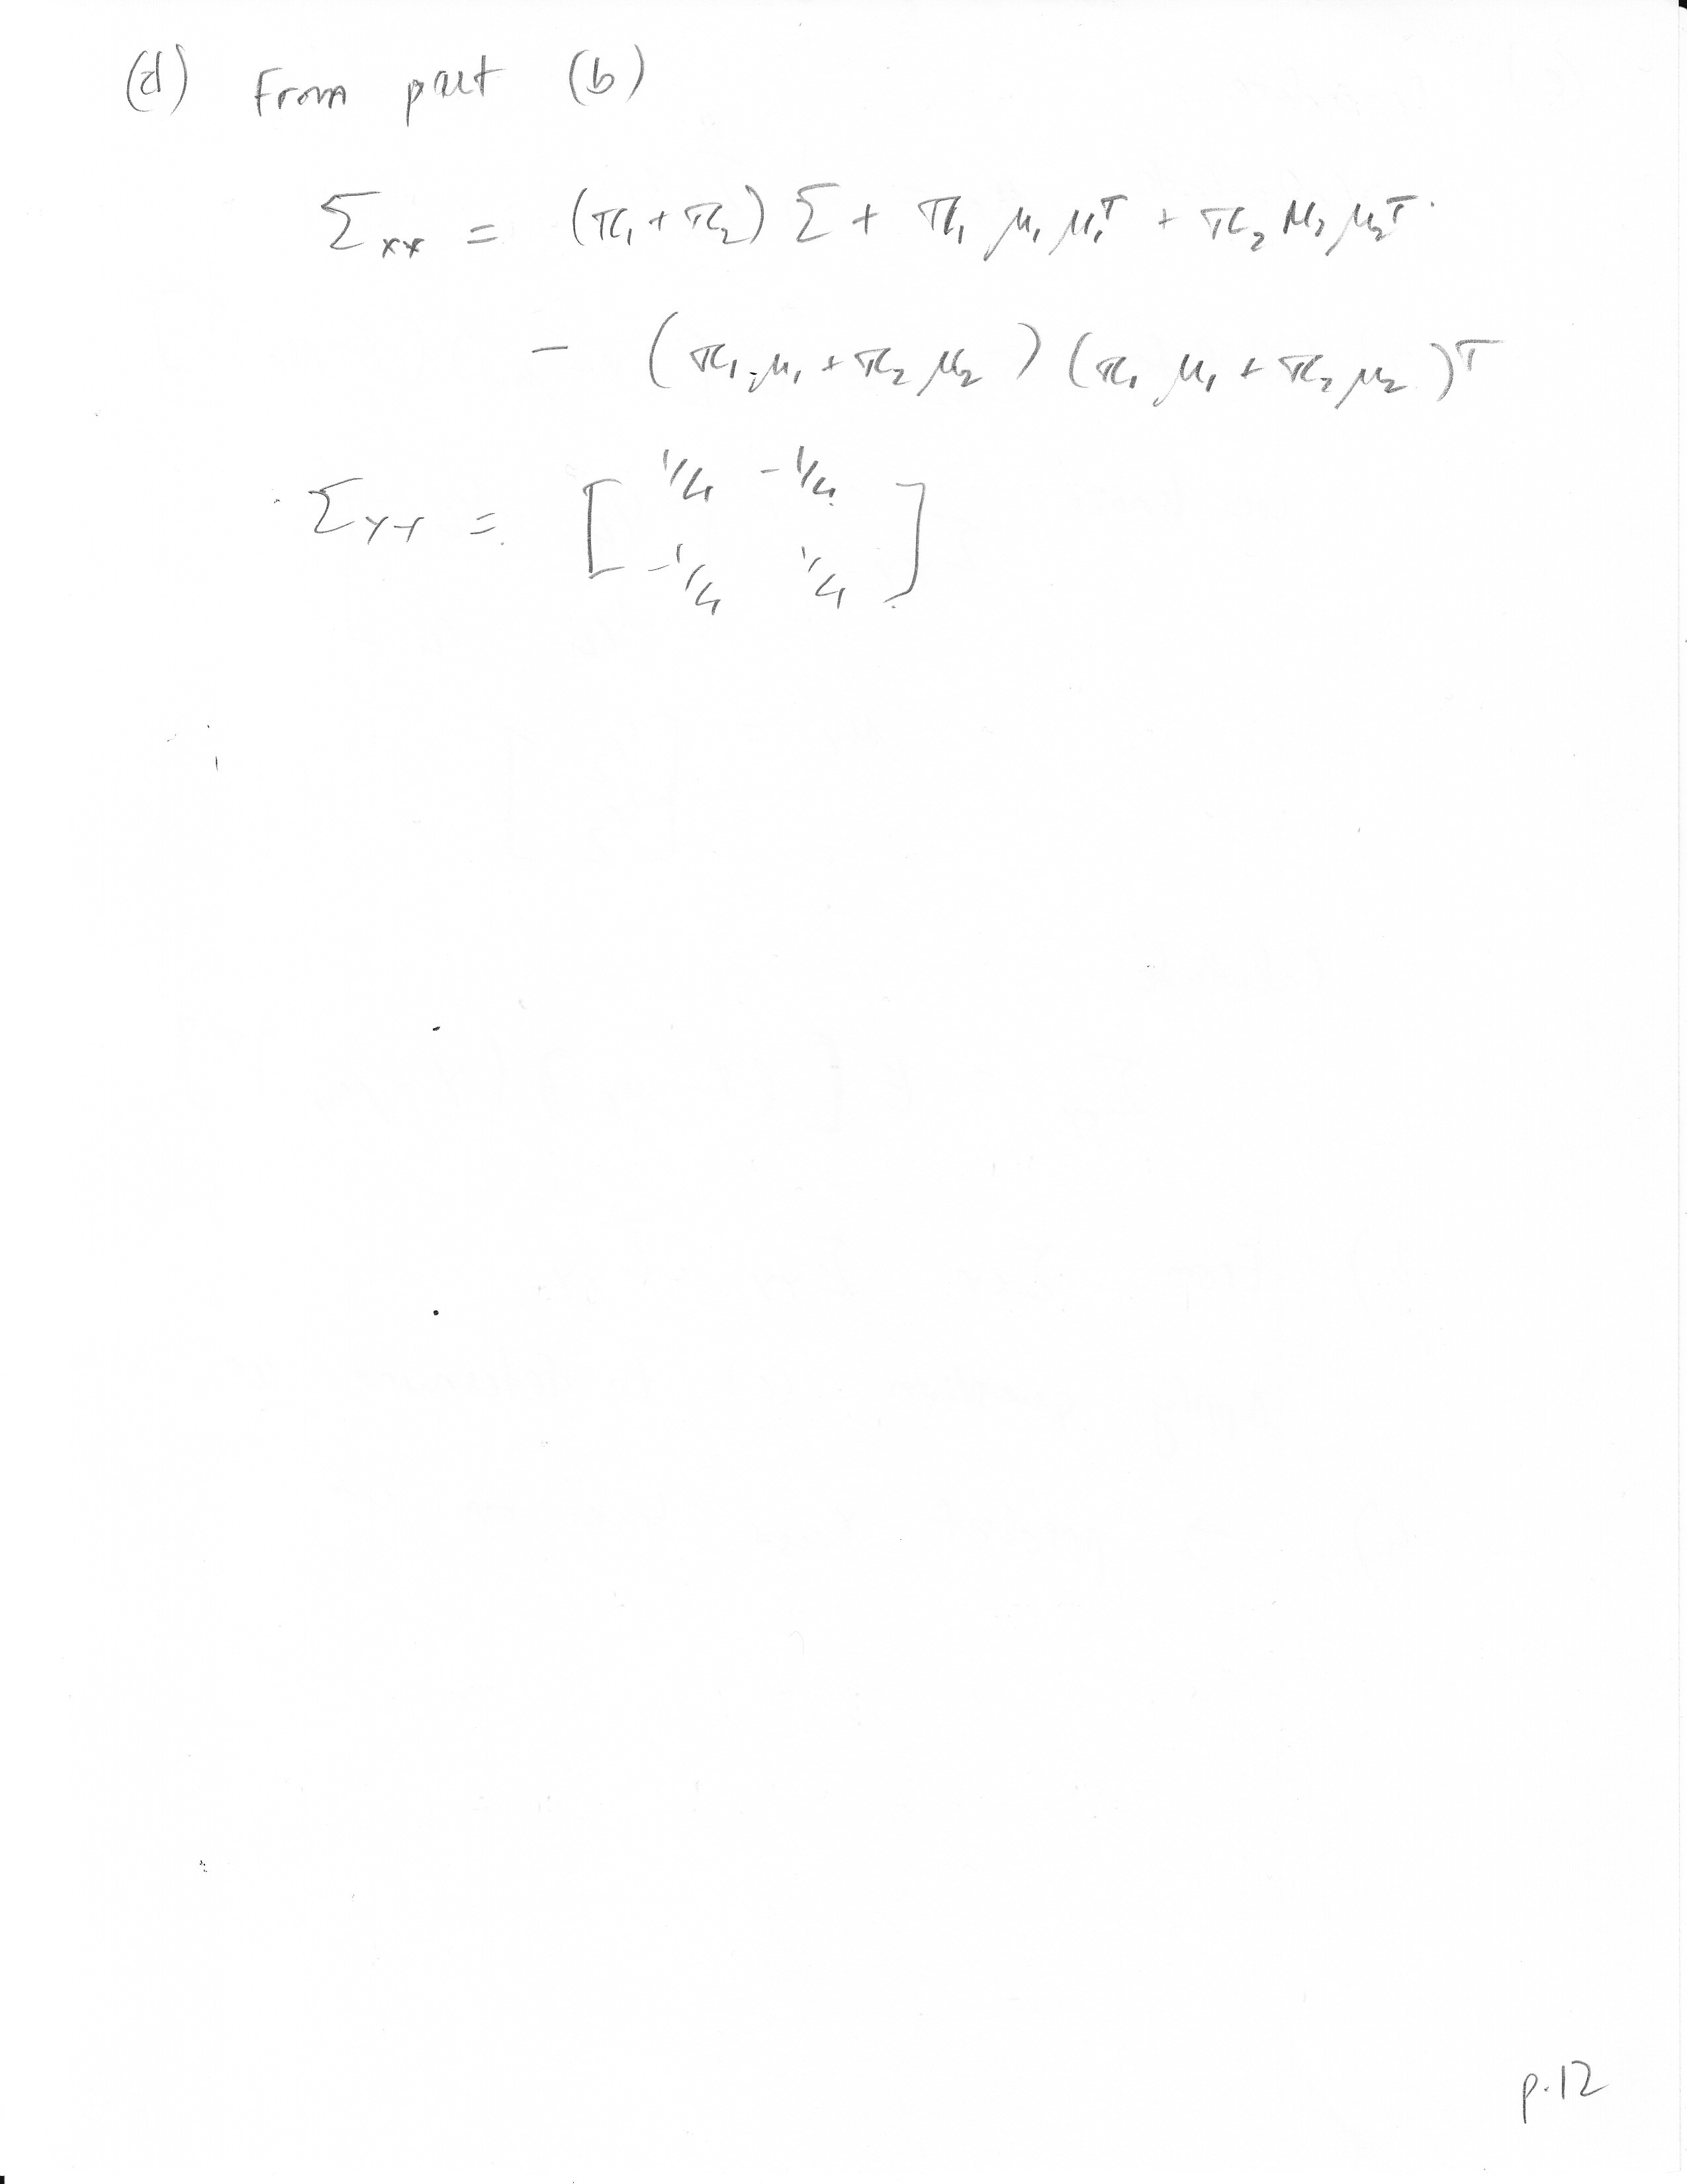 (d) From part (b)
Σxx = (π₁ + π₂) Σ + π₁ μ₁ μ₁ᵀ + π₂ μ₂ μ₂ᵀ
- (π₁ μ₁ + π₂ μ₂) (π₁ μ₁ + π₂ μ₂)ᵀ
Σyy = [ 1/4 -1/4
-1/4 1/4 ]
p.12